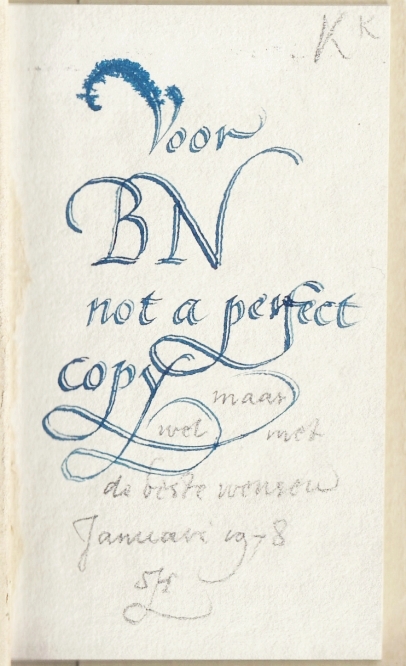 K K
Voor
BN
not a perfect
copy maar
wel met
de beste wensen
Januari 1978